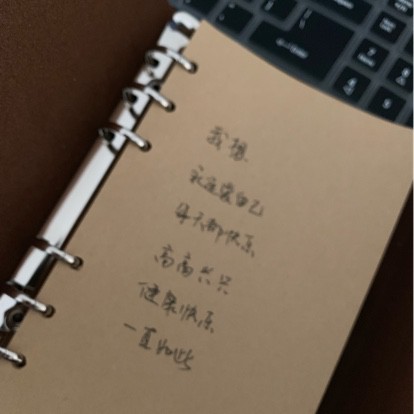 我想
永远爱自己
每天都快乐
高高兴兴
健康快乐
一直如此